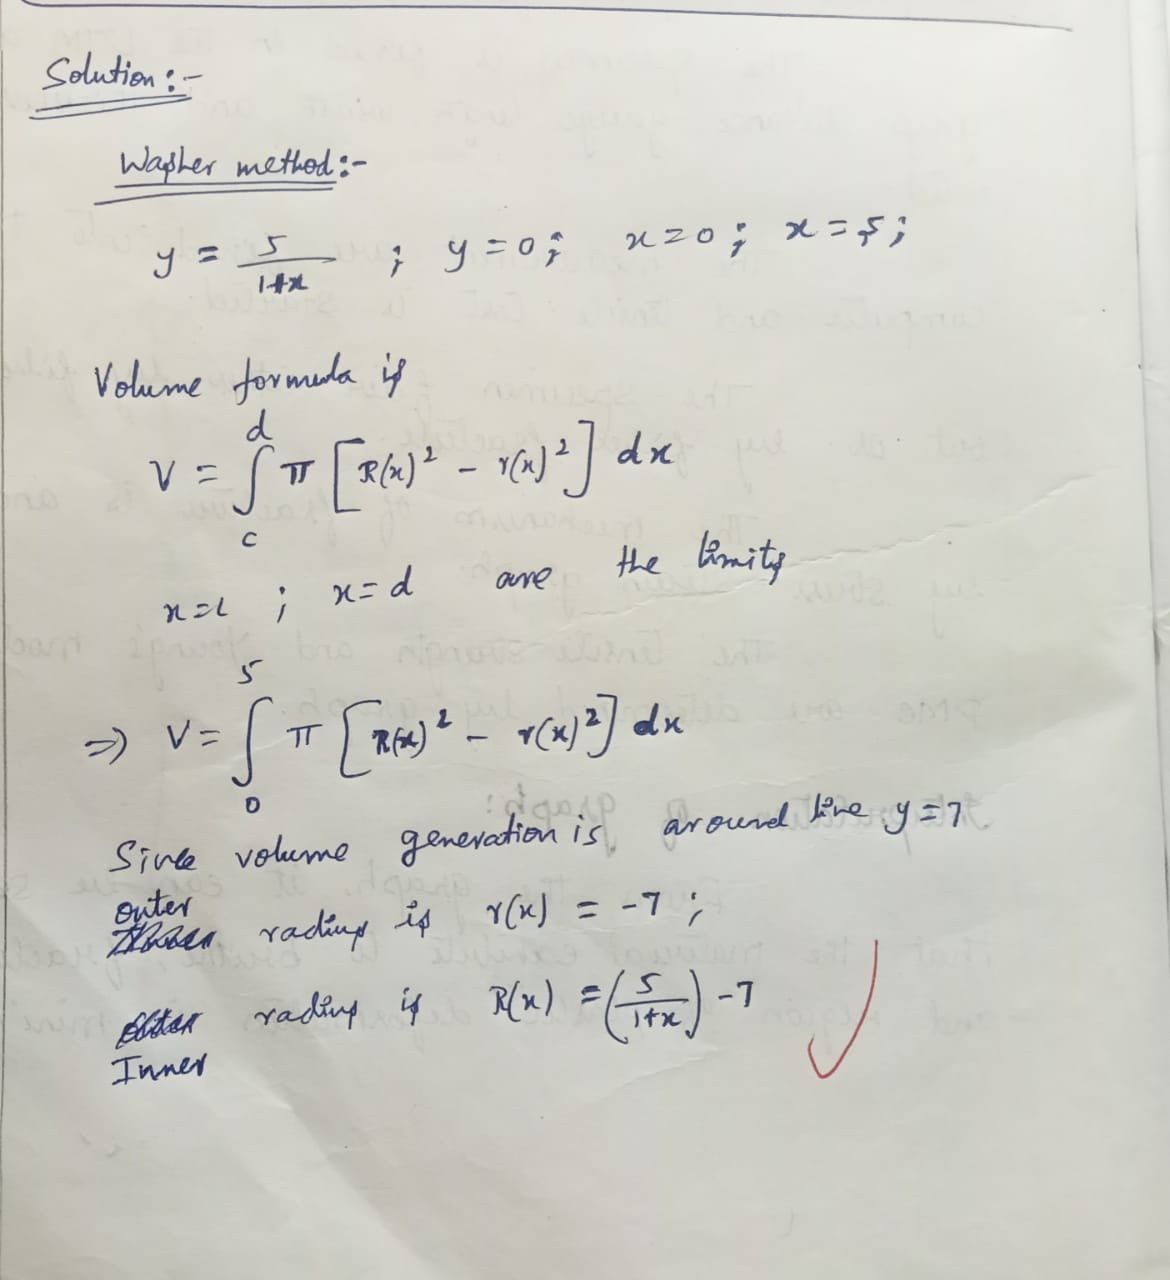 Solution :-
Washer method :-
y = 5/(1+x) ; y = 0 ; x = 0 ; x = 5 ;
Volume formula is
V = ∫_c^d π [R(x)² - r(x)²] dx
x = c ; x = d are the limits
⇒ V = ∫_0^5 π [R(x)² - r(x)²] dx
Since volume generation is around line y = 7
outer radius is r(x) = -7 ;
Inner radius is R(x) = (5/(1+x)) - 7